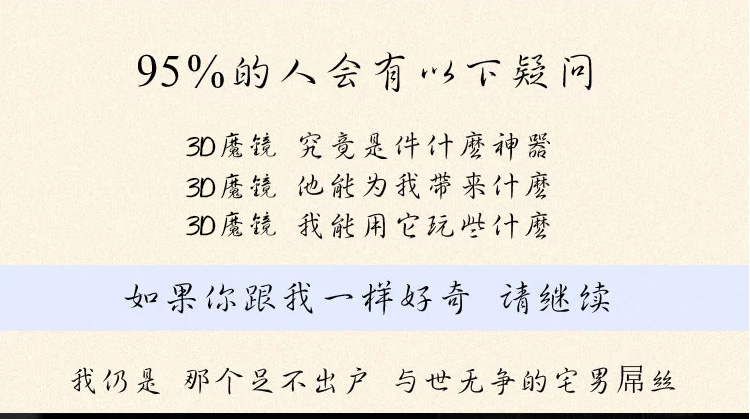 95%的人会有以下疑问
3D魔镜 究竟是件什麽神器
3D魔镜 他能为我带来什麽
3D魔镜 我能用它玩些什麽
如果你跟我一样好奇 请继续
我仍是 那个足不出户 与世无争的宅男屌丝